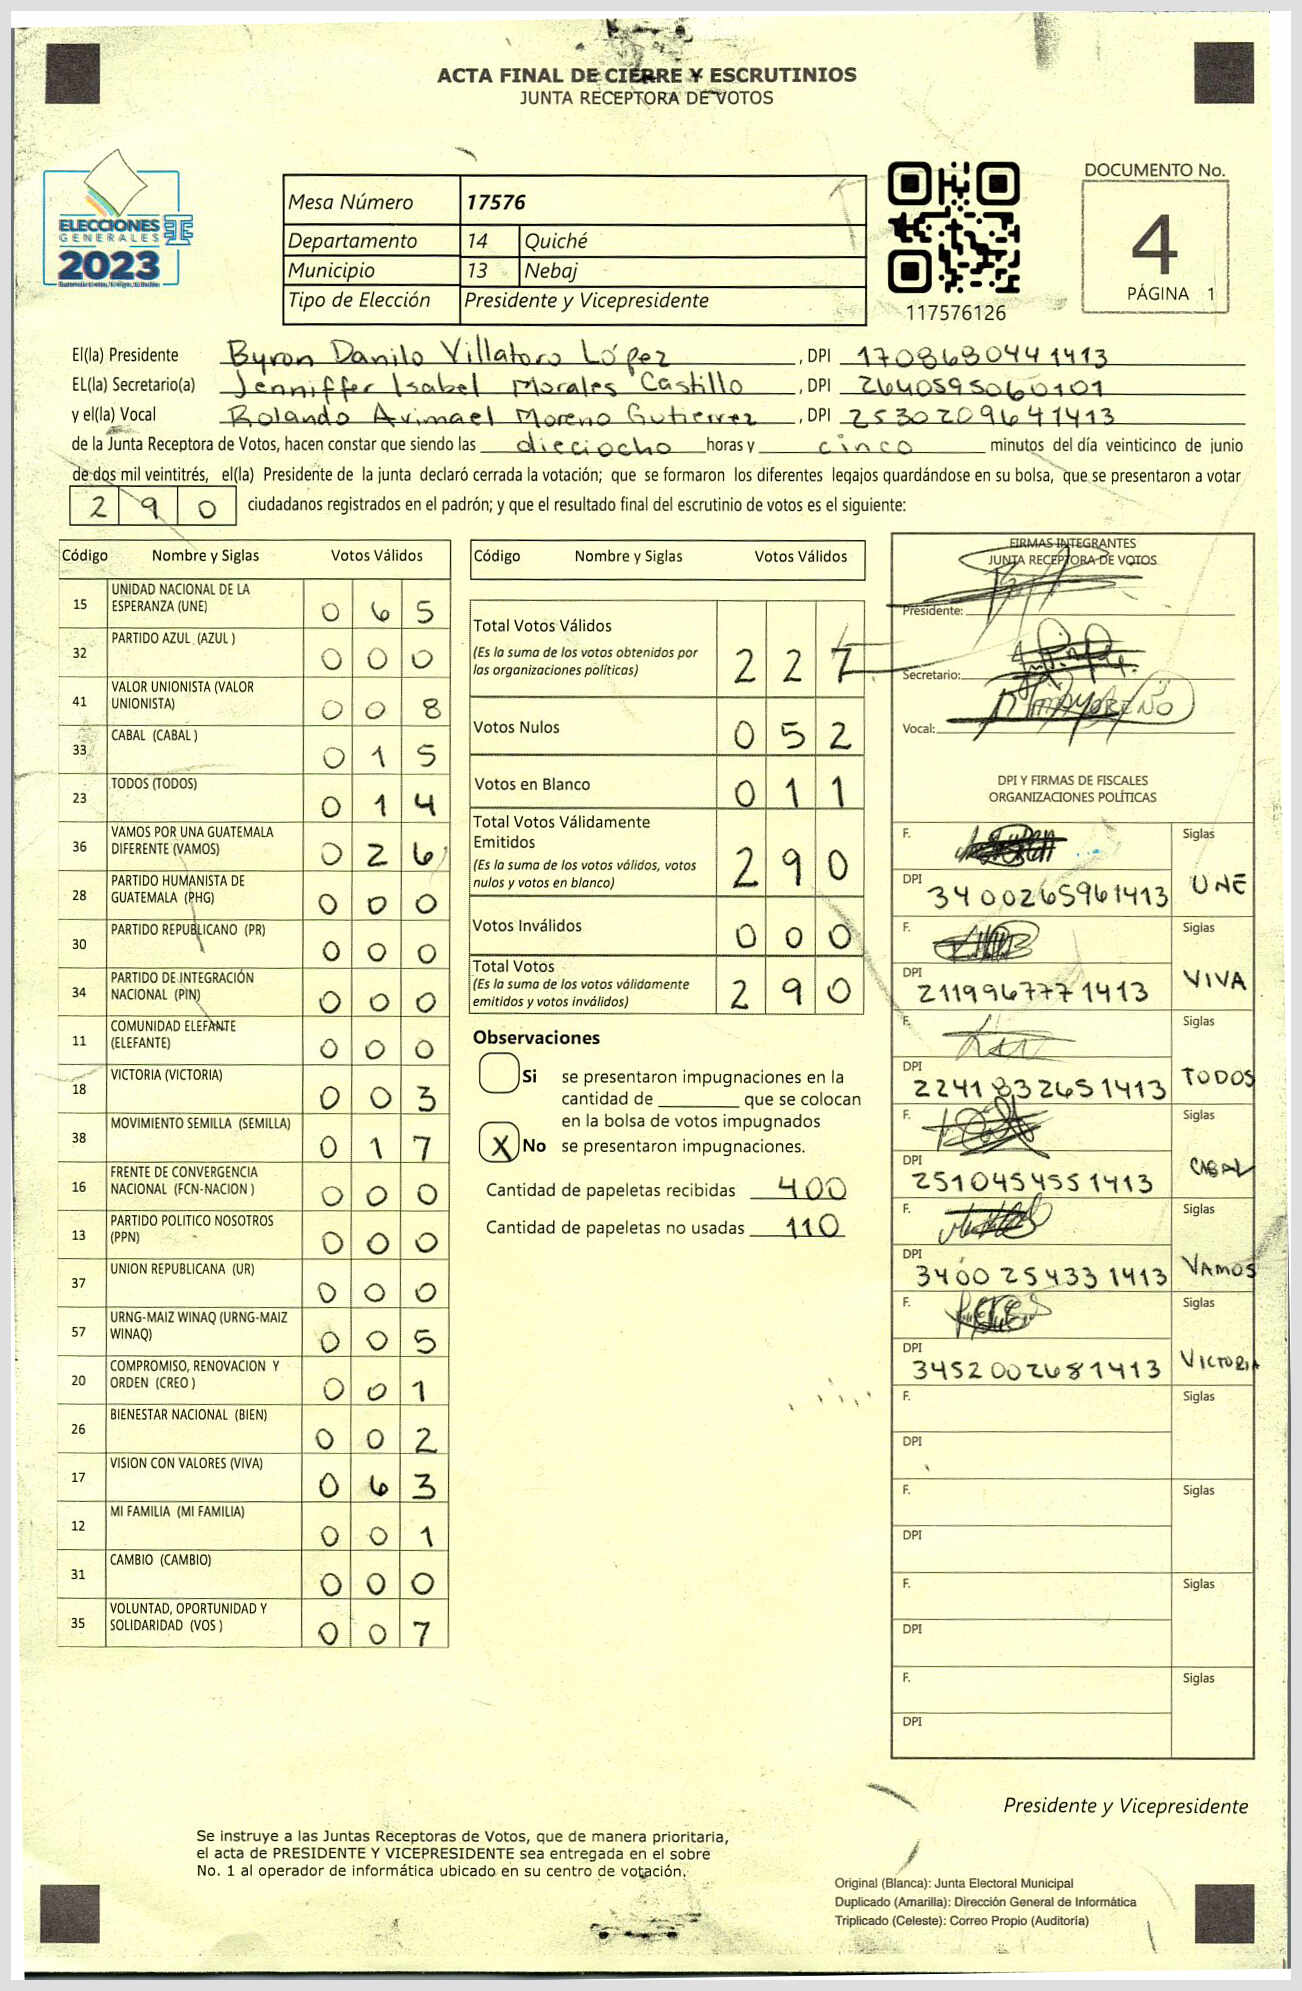 ACTA FINAL DE CIERRE Y ESCRUTINIOS
JUNTA RECEPTORA DE VOTOS
ELECCIONES
GENERALES
2023
Mesa Número 17576
Departamento 14 Quiché
Municipio 13 Nebaj
Tipo de Elección Presidente y Vicepresidente
117576126
DOCUMENTO No.
4
PÁGINA 1
El(la) Presidente Byron Danilo Villatoro López , DPI 1708680441413
EL(la) Secretario(a) Jenniffer Isabel Morales Castillo , DPI 2640595060101
y el(la) Vocal Rolando Avimael Moreno Gutierrez , DPI 2530209641413
de la Junta Receptora de Votos, hacen constar que siendo las dieciocho horas y cinco minutos del día veinticinco de junio
de dos mil veintitrés, el(la) Presidente de la junta declaró cerrada la votación; que se formaron los diferentes legajos guardándose en su bolsa, que se presentaron a votar
290 ciudadanos registrados en el padrón; y que el resultado final del escrutinio de votos es el siguiente:
Código Nombre y Siglas Votos Válidos
15 UNIDAD NACIONAL DE LA ESPERANZA (UNE) 0 6 5
32 PARTIDO AZUL (AZUL ) 0 0 0
41 VALOR UNIONISTA (VALOR UNIONISTA) 0 0 8
33 CABAL (CABAL ) 0 1 5
23 TODOS (TODOS) 0 1 4
36 VAMOS POR UNA GUATEMALA DIFERENTE (VAMOS) 0 2 6
28 PARTIDO HUMANISTA DE GUATEMALA (PHG) 0 0 0
30 PARTIDO REPUBLICANO (PR) 0 0 0
34 PARTIDO DE INTEGRACIÓN NACIONAL (PIN) 0 0 0
11 COMUNIDAD ELEFANTE (ELEFANTE) 0 0 0
18 VICTORIA (VICTORIA) 0 0 3
38 MOVIMIENTO SEMILLA (SEMILLA) 0 1 7
16 FRENTE DE CONVERGENCIA NACIONAL (FCN-NACION ) 0 0 0
13 PARTIDO POLITICO NOSOTROS (PPN) 0 0 0
37 UNION REPUBLICANA (UR) 0 0 0
57 URNG-MAIZ WINAQ (URNG-MAIZ WINAQ) 0 0 5
20 COMPROMISO, RENOVACION Y ORDEN (CREO ) 0 0 1
26 BIENESTAR NACIONAL (BIEN) 0 0 2
17 VISION CON VALORES (VIVA) 0 6 3
12 MI FAMILIA (MI FAMILIA) 0 0 1
31 CAMBIO (CAMBIO) 0 0 0
35 VOLUNTAD, OPORTUNIDAD Y SOLIDARIDAD (VOS ) 0 0 7
Código Nombre y Siglas Votos Válidos
Total Votos Válidos 2 2 7
(Es la suma de los votos obtenidos por
las organizaciones políticas)
Votos Nulos 0 5 2
Votos en Blanco 0 1 1
Total Votos Válidamente
Emitidos 2 9 0
(Es la suma de los votos válidos, votos
nulos y votos en blanco)
Votos Inválidos 0 0 0
Total Votos 2 9 0
(Es la suma de los votos válidamente
emitidos y votos inválidos)
Observaciones
Si se presentaron impugnaciones en la
cantidad de ________ que se colocan
en la bolsa de votos impugnados
X No se presentaron impugnaciones.
Cantidad de papeletas recibidas 400
Cantidad de papeletas no usadas 110
FIRMAS INTEGRANTES
JUNTA RECEPTORA DE VOTOS
Presidente:
Secretario:
Vocal:
DPI Y FIRMAS DE FISCALES
ORGANIZACIONES POLÍTICAS
F. Siglas
DPI 3400265961413 UNE
F. Siglas
DPI 2119967771413 VIVA
F. Siglas
DPI 2241832651413 TODOS
F. Siglas
DPI 2510454551413 CABAL
F. Siglas
DPI 3400254331413 VAMOS
F. Siglas
DPI 3452002681413 VICTORIA
F. Siglas
DPI
F. Siglas
DPI
F. Siglas
DPI
F. Siglas
DPI
Presidente y Vicepresidente
Se instruye a las Juntas Receptoras de Votos, que de manera prioritaria,
el acta de PRESIDENTE Y VICEPRESIDENTE sea entregada en el sobre
No. 1 al operador de informática ubicado en su centro de votación.
Original (Blanca): Junta Electoral Municipal
Duplicado (Amarilla): Dirección General de Informática
Triplicado (Celeste): Correo Propio (Auditoría)